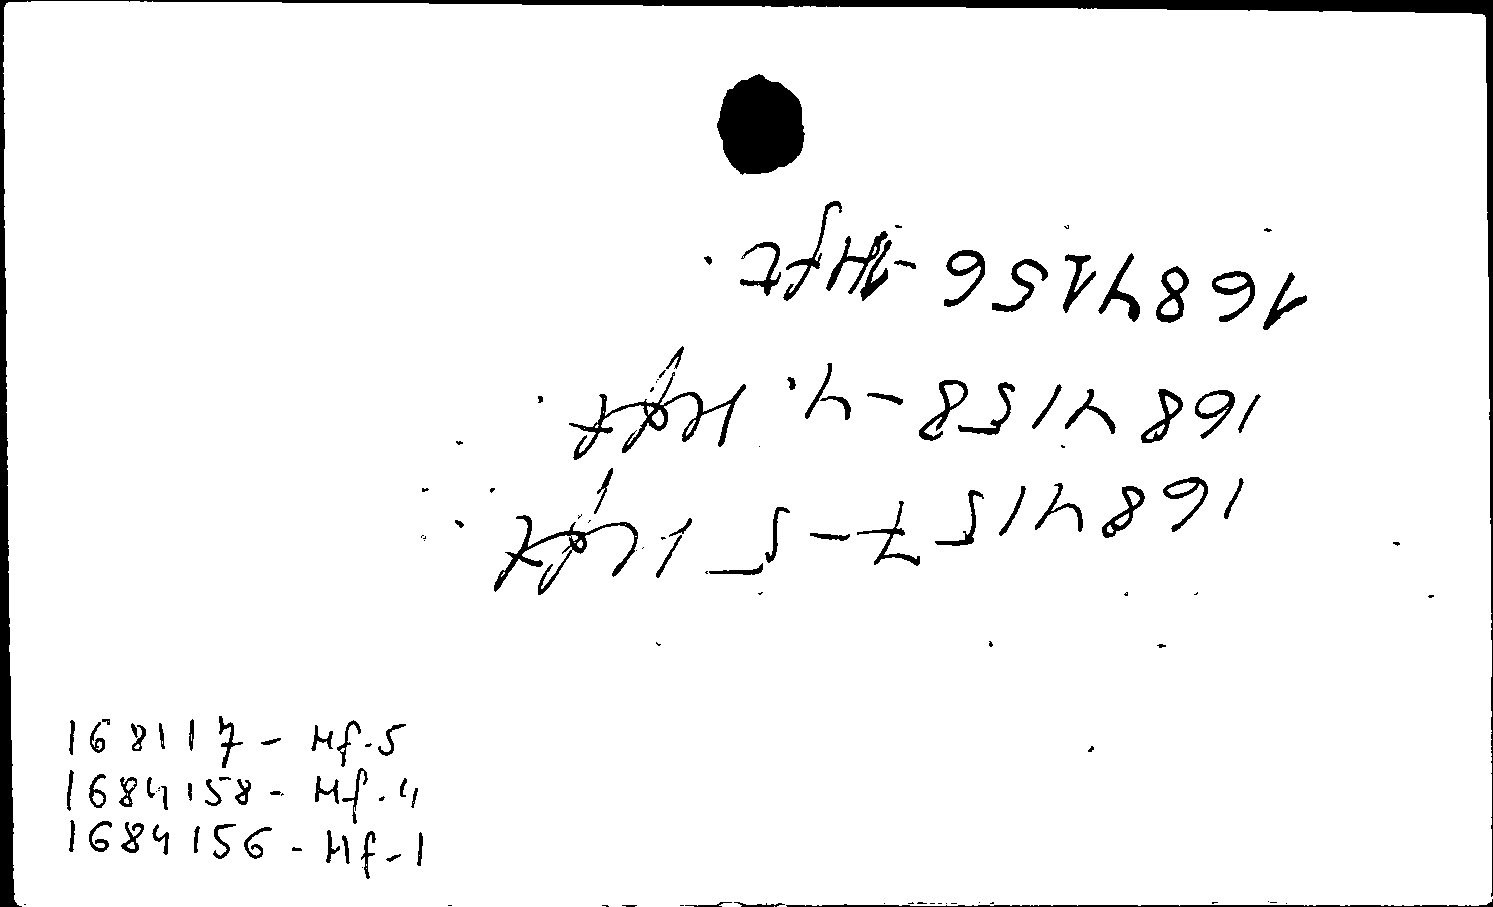 1684156-Hft
1684158-4.
1684157-5
168117-Hf.5
1684158-Hf.4
1684156-Hf-1